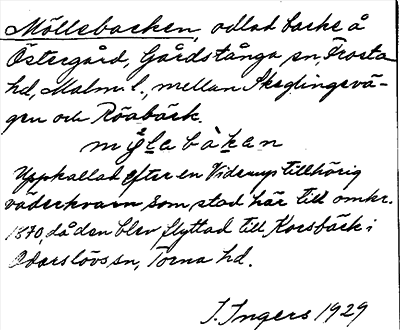 Möllebacken, odlad backe å
Östergård, Gårdstånga sn, Frosta
hd, Malm. l., mellan Skeglingevä-
gen och Röabäck.
mỹlabàkan
Uppkallad efter en Viderup tillhörig
väderkvarn som stod här till omkr.
1870, då den blev flyttad till Korsbäck i
Odarslövs sn, Torna hd.
I. Ingers 1929